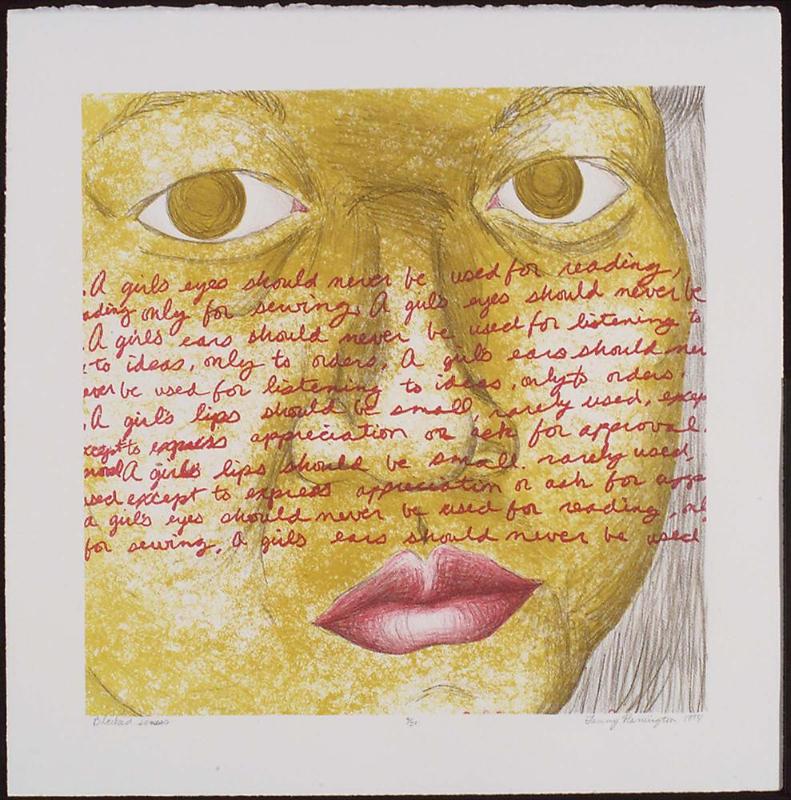 . A girls eyes should never be used for reading,
ading only for sewing. A girls eyes should never be
. A girls ears should never be used for listening to
to ideas, only to orders. A girls ears should
ever be used for listening to ideas, only to orders.
. A girls lips should be small, rarely used, excep
xcept to express appreciation or ask for approval.
A girls lips should be small. rarely used,
used except to express appreciation or ask for
a girls eyes should never be used for reading, onl
for sewing. A girls ears should never be used
Blocked senses
Remington 1994